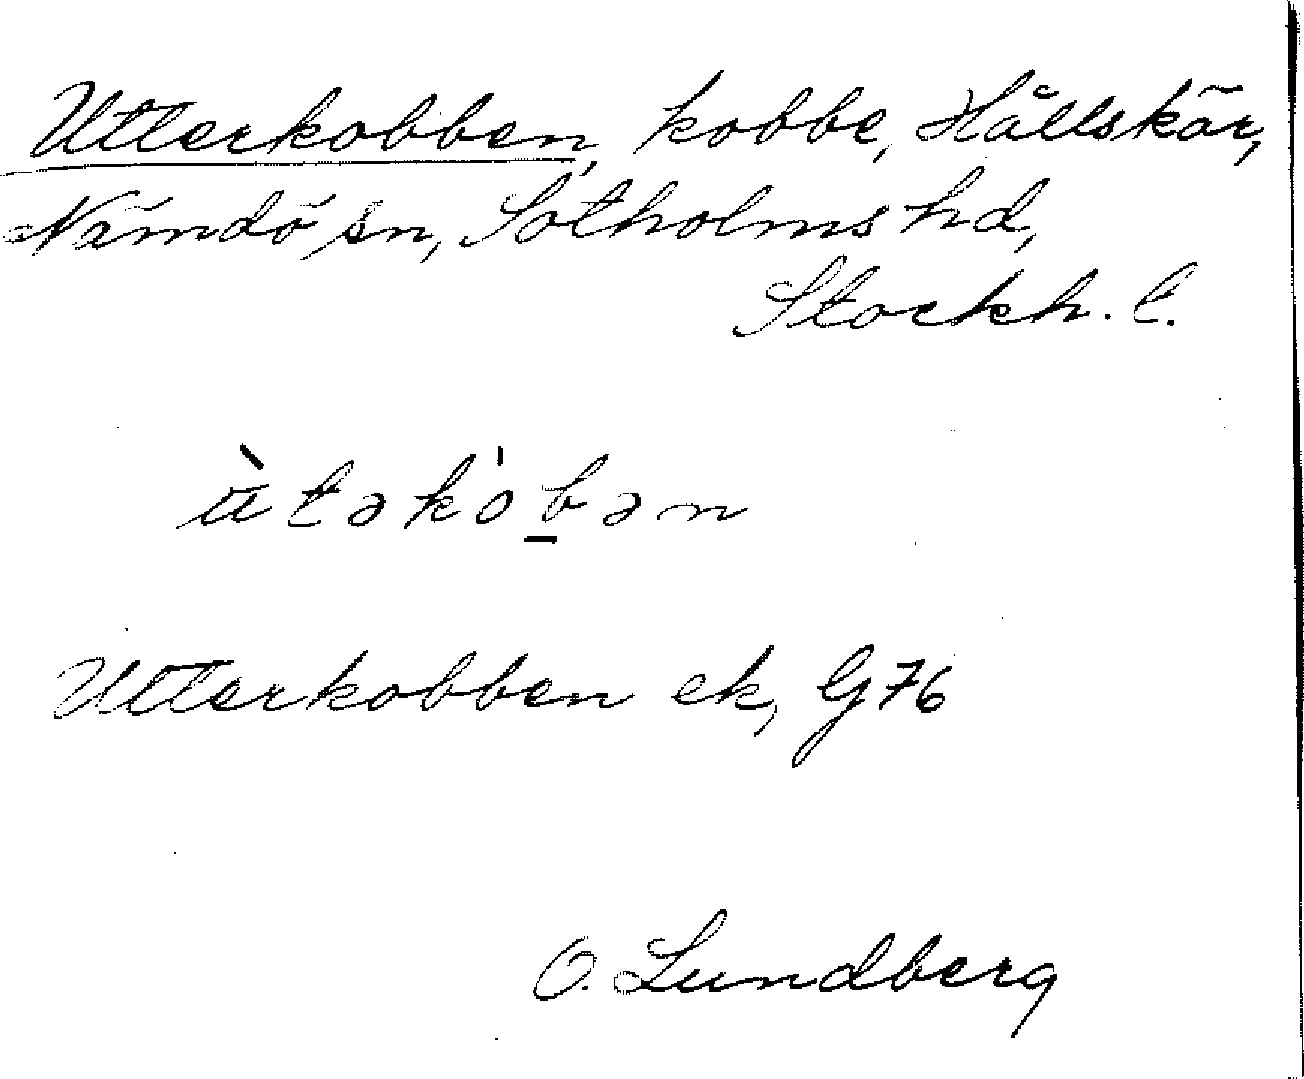 Utterkobben, kobbe, Hållskär,
Nämdö sn, Sotholms hd,
Stockh. l.
ùtəkò́b̲ən
Utterkobben ek, G76
O. Lundberg